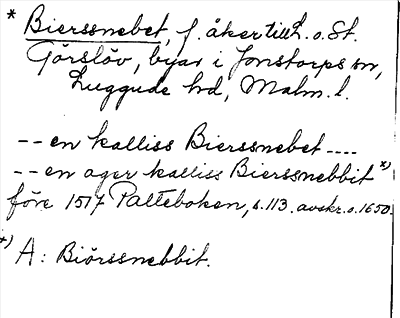 * Bierssnebet, f. åker till L. o. St.
Görslöv, byar i Jonstorps sn,
Luggude hd, Malm. l.
-- en kalliss Bierssnebet ----
-- en ager kalliss Bierssnebbit *)
före 1517 Palteboken, s. 113. avskr. o. 1650.
*) A: Biörssnebbit.